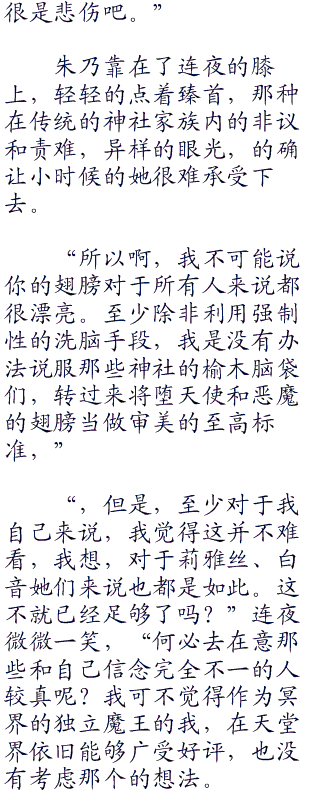 很是悲伤吧。”
朱乃靠在了连夜的膝
上，轻轻的点着臻首，那种
在传统的神社家族内的非议
和责难，异样的眼光，的确
让小时候的她很难承受下
去。
“所以啊，我不可能说
你的翅膀对于所有人来说都
很漂亮。至少除非利用强制
性的洗脑手段，我是没有办
法说服那些神社的榆木脑袋
们，转过来将堕天使和恶魔
的翅膀当做审美的至高标
准，”
“，但是，至少对于我
自己来说，我觉得这并不难
看，我想，对于莉雅丝、白
音她们来说也都是如此。这
不就已经足够了吗？”连夜
微微一笑，“何必去在意那
些和自己信念完全不一的人
较真呢？我可不觉得作为冥
界的独立魔王的我，在天堂
界依旧能够广受好评，也没
有考虑那个的想法。